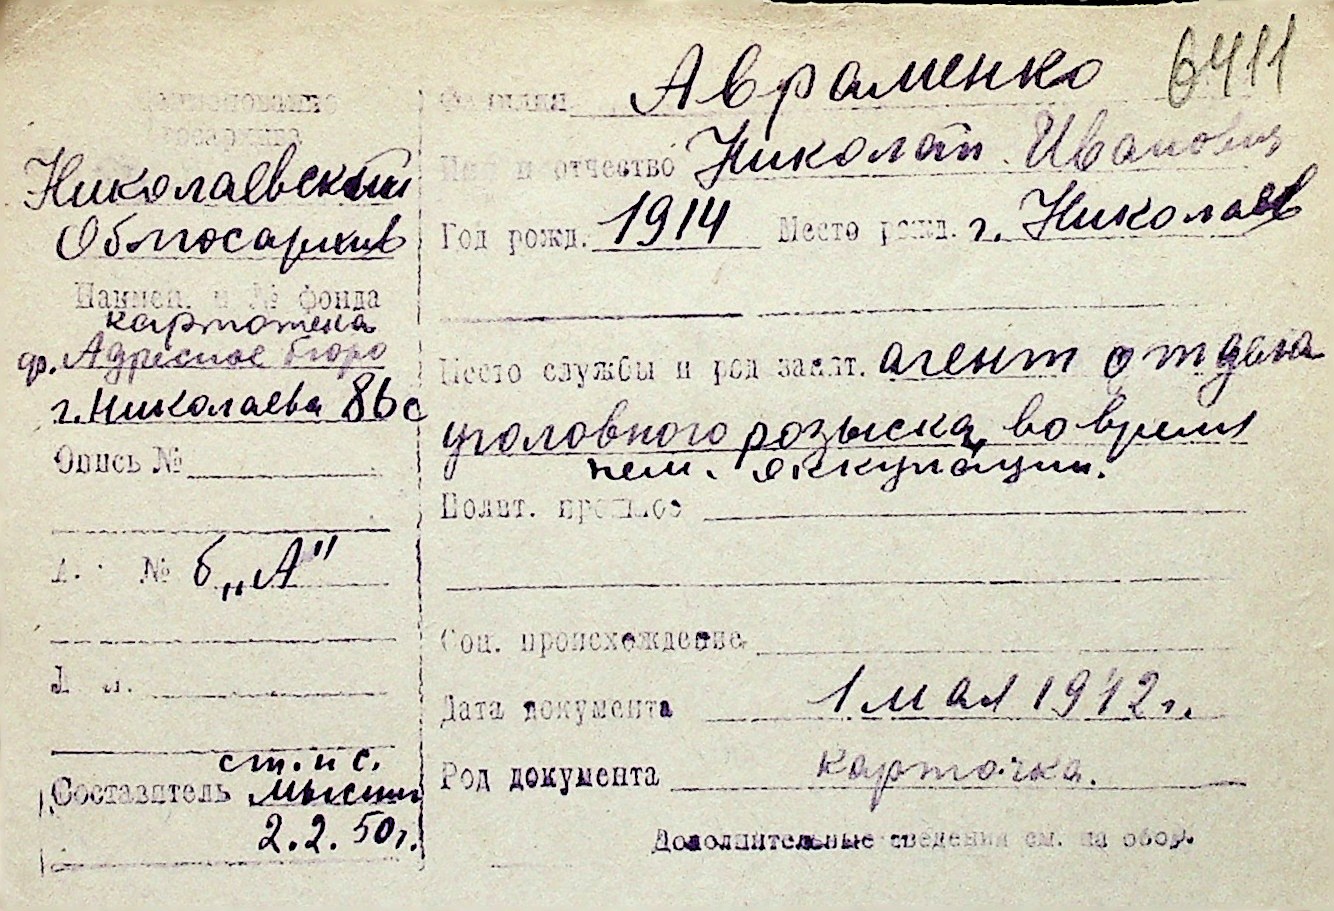 6411
Наименование
госархива
Николаевский
Облгосархив
Наимен. и № фонда
картотека
ф. Адресное бюро
г. Николаева 86с
Опись №
№ б „А"
Составитель
ст. н с.
2.2.50г.
Фамилия Авраменко
Имя и отчество Николай Иванович
Год рожд. 1914 Место рожд. г. Николаев
Место службы и род занят. агент отдела
уголовного розыска, во время
нем. оккупации.
Полит. прошлое
Соц. происхождение
Дата документа 1 мая 1942 г.
Род документа карточка.
Дополнительные сведения см. на обор.